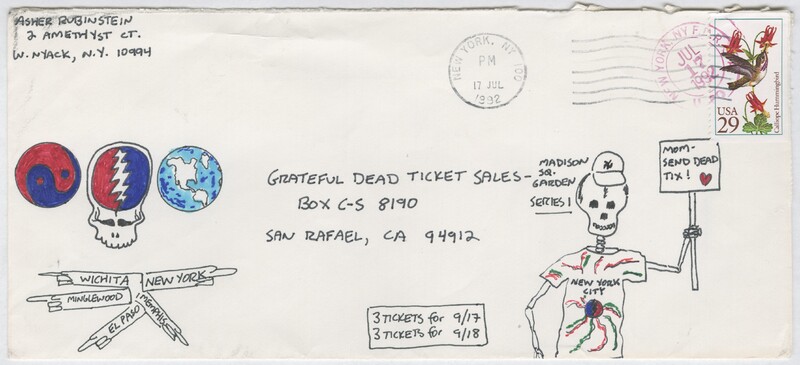 ASHER RUBINSTEIN
2 AMETHYST CT.
W. NYACK, N.Y. 10994
NEW YORK, NY 100
PM
17 JUL
1992
NEW YORK, NY
JUL
1992
USA
29
Calliope Hummingbird
GRATEFUL DEAD TICKET SALES-
BOX C-S 8190
SAN RAFAEL, CA 94912
MADISON
SQ.
GARDEN
SERIES 1
MOM-
SEND DEAD
TIX!
NEW YORK
CITY
WICHITA
NEW YORK
MINGLEWOOD
MEMPHIS
EL PASO
3 TICKETS for 9/17
3 TICKETS for 9/18